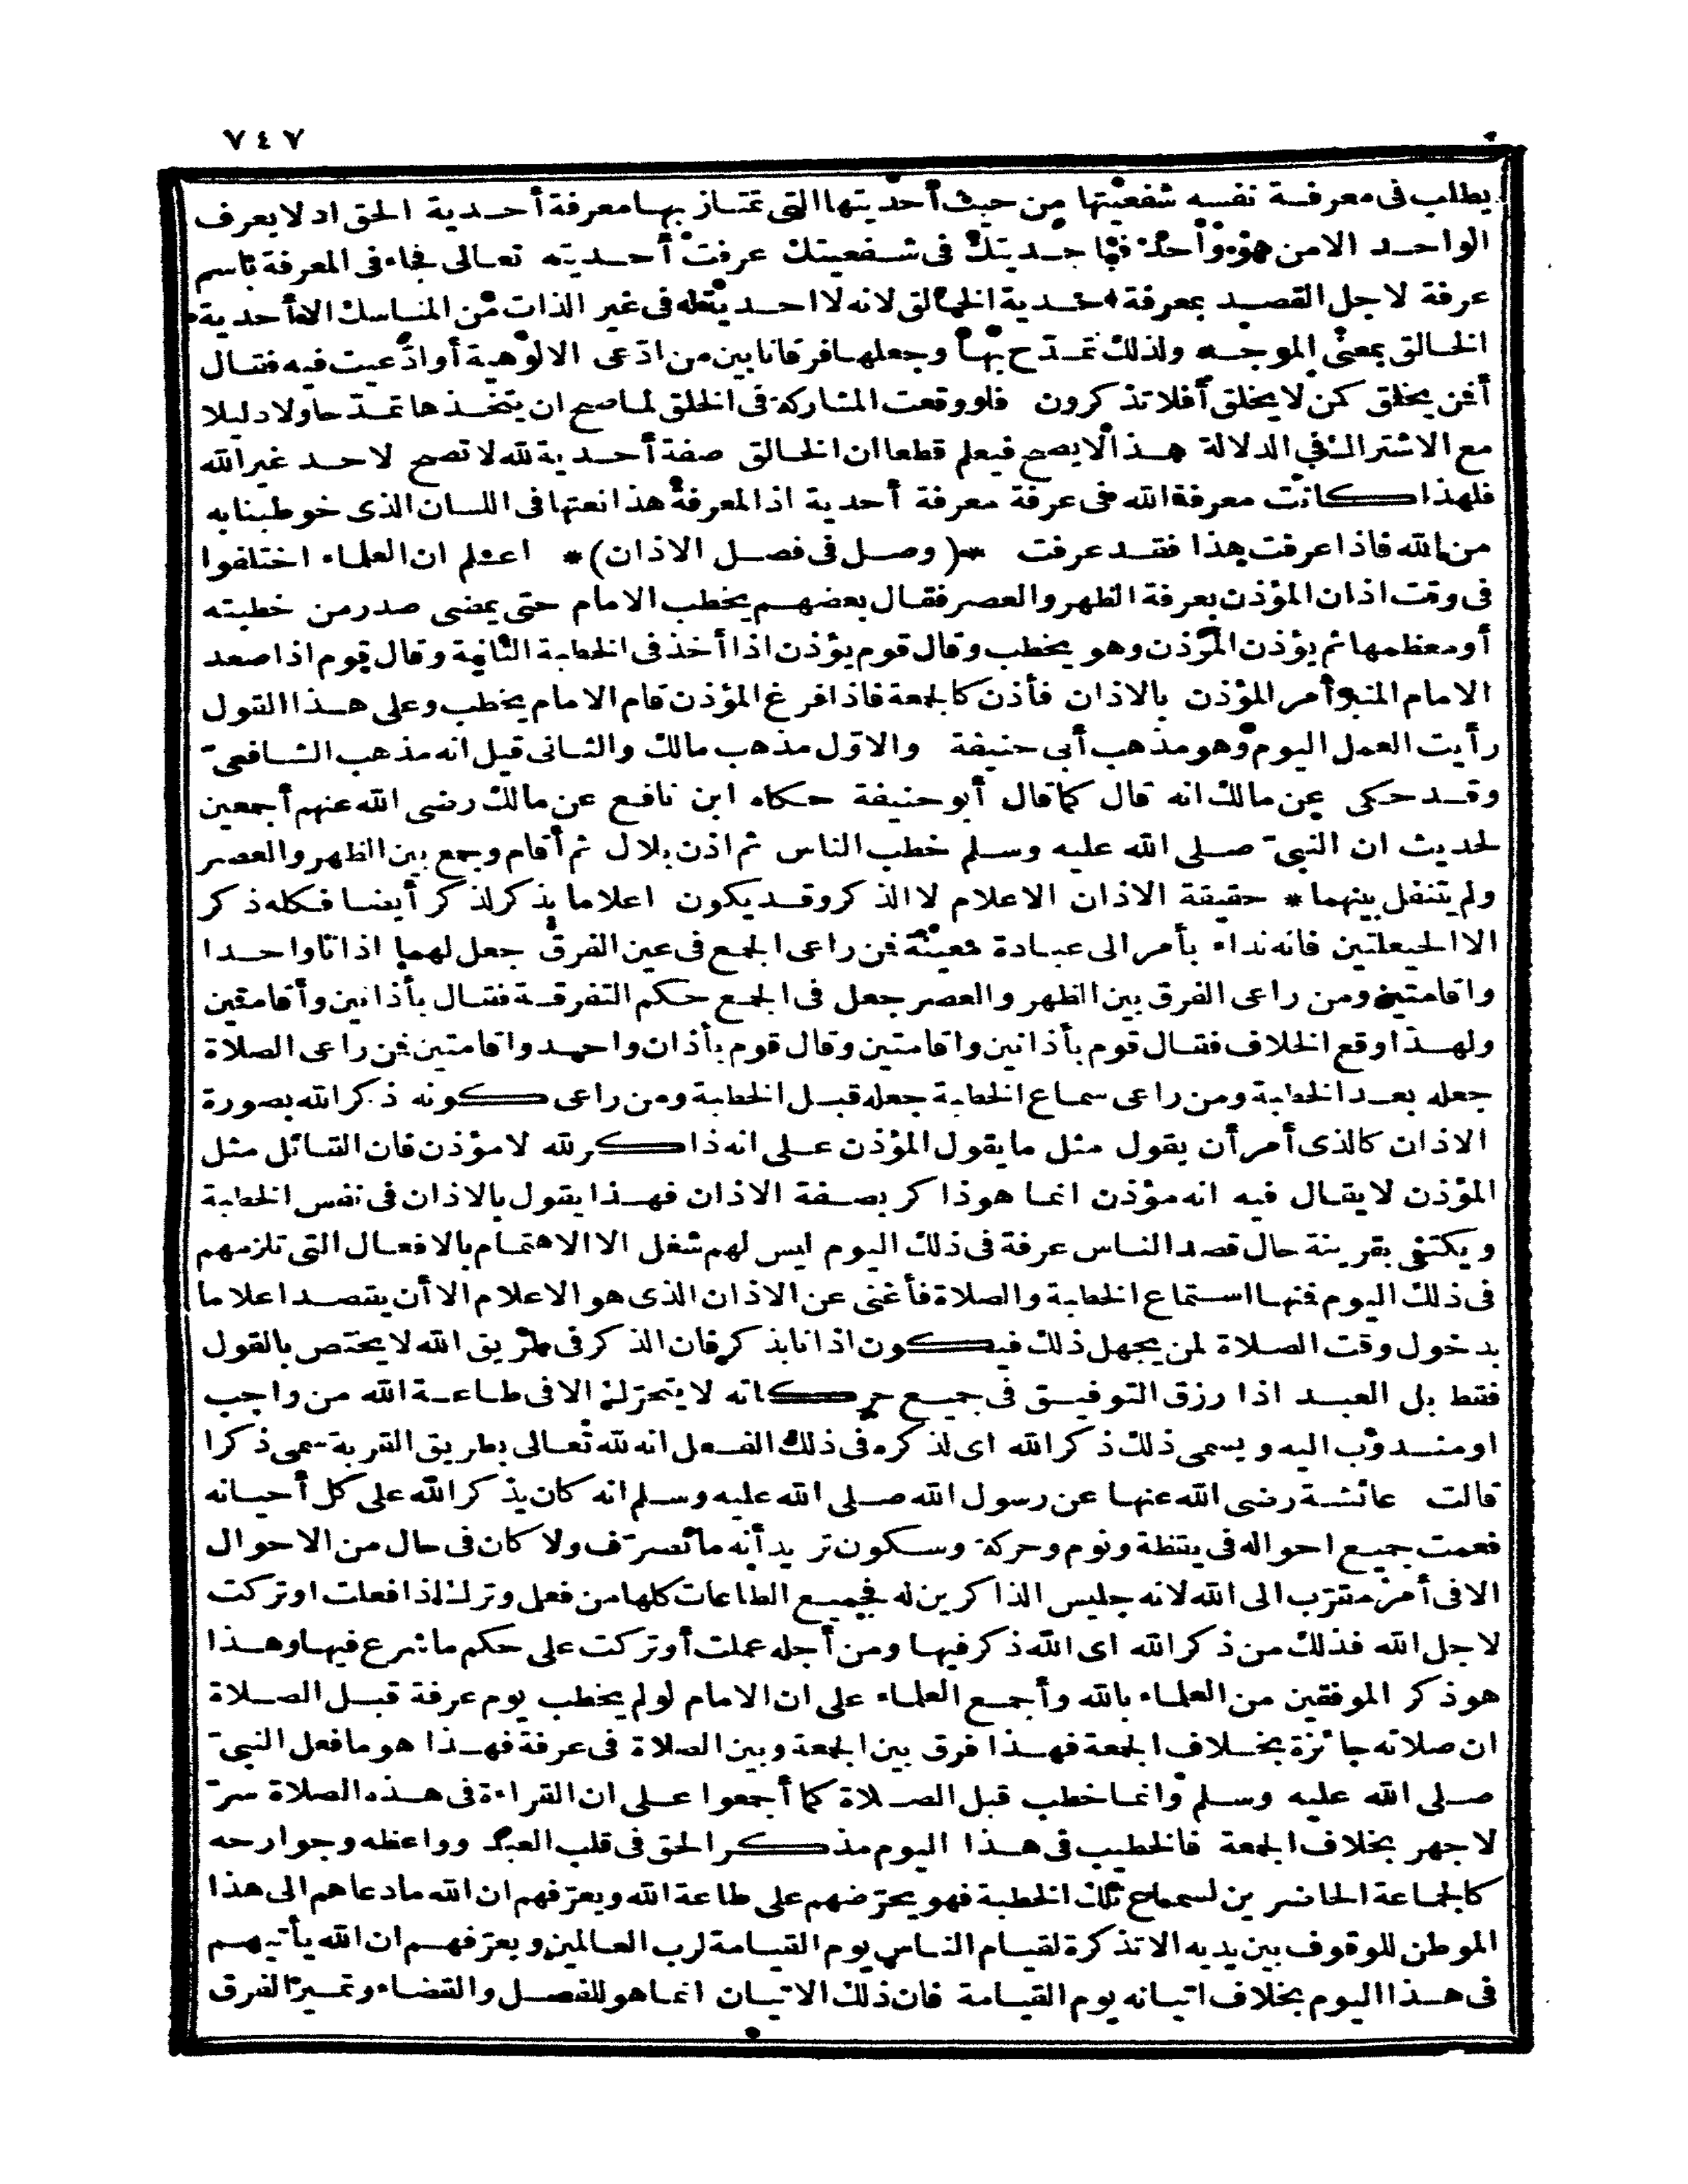 ٧٤٧
يطلب فى معرفة نفسه شفعيتها من حيث أحديتها التى تمتاز بها معرفة أحدية الحق اد لا يعرف
الواحد الا من هو واحد فبأحديتك فى شفعيتك عرفت أحديته تعالى فجاء فى المعرفة باسم
عرفة لاجل القصد بمعرفة احدية الخالق لانه لا احدية له فى غير الذات من المناسك الا أحدية
الخالق بمعنى الموجد ولذلك تمدّح بها وجعلها فرقانا بين من ادّعى الالوهية أو ادّعيت فيه فقال
أفمن يخلق كمن لا يخلق أفلا تذكرون فلو وقعت المشاركة فى الخلق لما صح ان يتخذها تمدّحا ولا دليلا
مع الاشتراك فى الدلالة هذا لا يصح فيعلم قطعا ان الخالق صفة أحدية لله لا تصح لاحد غير الله
فلهذا كانت معرفة الله فى عرفة معرفة أحدية اذ المعرفة هذا نعتها فى اللسان الذى خوطبنا به
من الله فاذا عرفت هذا فقد عرفت *(وصل فى فصل الاذان)* اعلم ان العلماء اختلفوا
فى وقت اذان المؤذن بعرفة الظهر والعصر فقال بعضهم يخطب الامام حتى يمضى صدر من خطبته
أو معظمها ثم يؤذن المؤذن وهو يخطب وقال قوم يؤذن اذا أخذ فى الخطبة الثانية وقال قوم اذا صعد
الامام المنبر أمر المؤذن بالاذان فأذن كالجمعة فاذا فرغ المؤذن قام الامام يخطب وعلى هذا القول
رأيت العمل اليوم وهو مذهب أبى حنيفة والاوّل مذهب مالك والثانى قيل انه مذهب الشافعىّ
وقد حكى عن مالك انه قال كما قال أبو حنيفة حكاه ابن نافع عن مالك رضى الله عنهم أجمعين
لحديث ان النبىّ صلى الله عليه وسلم خطب الناس ثم اذن بلال ثم أقام وجمع بين الظهر والعصر
ولم يتنفل بينهما * حقيقة الاذان الاعلام لا الذكر وقد يكون اعلاما بذكر لذكر أيضا فكله ذكر
الا الحيعلتين فانه نداء بأمر الى عبادة معينة فمن راعى الجمع فى عين الفرق جعل لهما اذانا واحدا
واقامتين ومن راعى الفرق بين الظهر والعصر جعل فى الجمع حكم التفرقة فقال بأذانين وأقامتين
ولهذا وقع الخلاف فقال قوم بأذانين واقامتين وقال قوم بأذان واحد واقامتين فمن راعى الصلاة
جعله بعد الخطبة ومن راعى سماع الخطبة جعله قبل الخطبة ومن راعى كونه ذكر الله بصورة
الاذان كالذى أمر أن يقول مثل ما يقول المؤذن على انه ذاكر لله لا مؤذن فان القائل مثل
المؤذن لا يقال فيه انه مؤذن انما هو ذاكر بصفة الاذان فهذا يقول بالاذان فى نفس الخطبة
ويكتفى بقرينة حال قصد الناس عرفة فى ذلك اليوم ليس لهم شغل الا الاهتمام بالافعال التى تلزمهم
فى ذلك اليوم فمنها استماع الخطبة والصلاة فأغنى عن الاذان الذى هو الاعلام الا أن يقصد اعلاما
بدخول وقت الصلاة لمن يجهل ذلك فيكون اذانا بذكر فان الذكر فى طريق الله لا يختص بالقول
فقط بل العبد اذا رزق التوفيق فى جميع حركاته لا يتحرّك الا فى طاعة الله من واجب
او مندوب اليه ويسمى ذلك ذكر الله اى لذكره فى ذلك الفعل انه لله تعالى بطريق القربة سمى ذكرا
قالت عائشة رضى الله عنها عن رسول الله صلى الله عليه وسلم انه كان يذكر الله على كل أحيانه
فعمت جميع احواله فى يقظة ونوم وحركة وسكون تريد أنه ما تصرّف ولا كان فى حال من الاحوال
الا فى أمر مقرّب الى الله لانه جليس الذاكرين له فجميع الطاعات كلها من فعل وترك اذا فعلت او تركت
لاجل الله فذلك من ذكر الله اى الله ذكر فيها ومن أجله عملت أو تركت على حكم ما شرع فيها وهذا
هو ذكر الموفقين من العلماء بالله وأجمع العلماء على ان الامام لو لم يخطب يوم عرفة قبل الصلاة
ان صلاته جائزة بخلاف الجمعة فهذا فرق بين الجمعة وبين الصلاة فى عرفة فهذا هو ما فعل النبىّ
صلى الله عليه وسلم وانما خطب قبل الصلاة كما أجمعوا على ان القراءة فى هذه الصلاة سرّ
لا جهر بخلاف الجمعة فالخطيب فى هذا اليوم مذكر الحق فى قلب العبد وواعظه وجوارحه
كالجماعة الحاضرين لسماع تلك الخطبة فهو يحرّضهم على طاعة الله ويعرّفهم ان الله ما دعاهم الى هذا
الموطن للوقوف بين يديه الا تذكرة لقيام الناس يوم القيامة لرب العالمين ويعرّفهم ان الله يأتيهم
فى هذا اليوم بخلاف اتيانه يوم القيامة فان ذلك الاتيان انما هو للفصل والقضاء وتميز الفرق